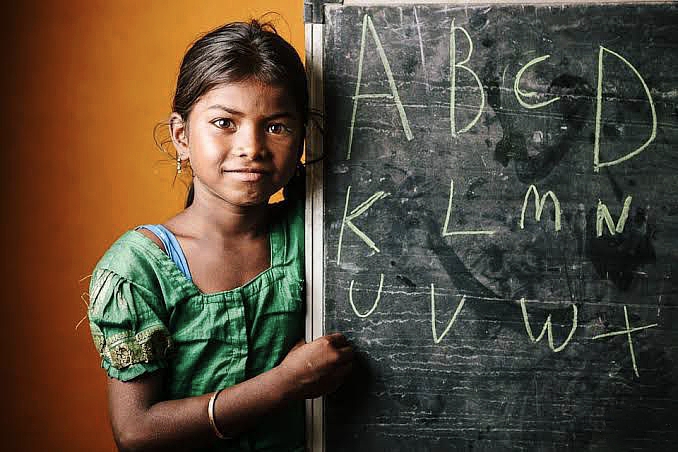 A B C D
K L M N
U V W X